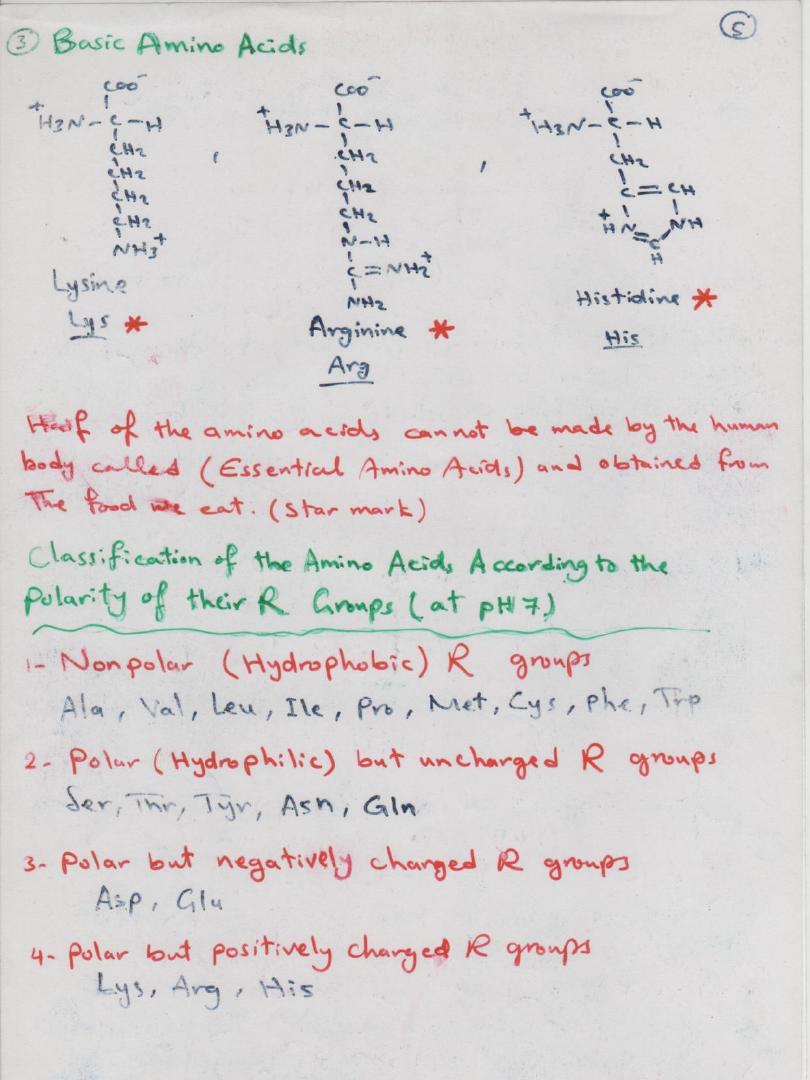 5
③ Basic Amino Acids
COO⁻ COO⁻ COO⁻
⁺H3N–C–H , ⁺H3N–C–H , ⁺H3N–C–H
CH2 CH2 CH2
CH2 CH2 C=CH
CH2 CH2 ⁺HN NH
CH2 N–H C
NH3⁺ C=NH2⁺ H
NH2
Lysine Arginine * Histidine *
Lys * Arg His
Half of the amino acids cannot be made by the human
body called (Essential Amino Acids) and obtained from
The food we eat. (Star mark)
Classification of the Amino Acids According to the
Polarity of their R Groups (at pH 7)
1- Nonpolar (Hydrophobic) R groups
Ala, Val, Leu, Ile, Pro, Met, Cys, Phe, Trp
2- Polar (Hydrophilic) but uncharged R groups
Ser, Thr, Tyr, Asn, Gln
3- Polar but negatively charged R groups
Asp, Glu
4- Polar but positively charged R groups
Lys, Arg, His